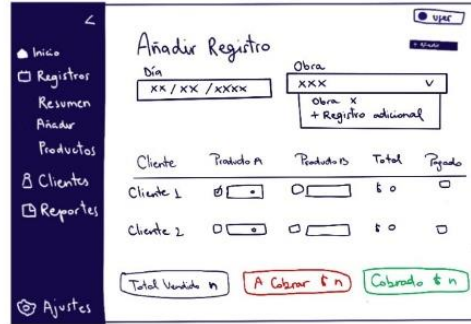 <
user
Inicio
Registros
Resumen
Añadir
Productos
Clientes
Reportes
Ajustes
Añadir Registro
+ Añadir
Día
xx / xx / xxxx
Obra
xxx v
Obra x
+ Registro adicional
Cliente Producto A Producto B Total Pagado
Cliente 1 $ 0
Cliente 2 $ 0
Total Vendido n
A Cobrar $ n
Cobrado $ n